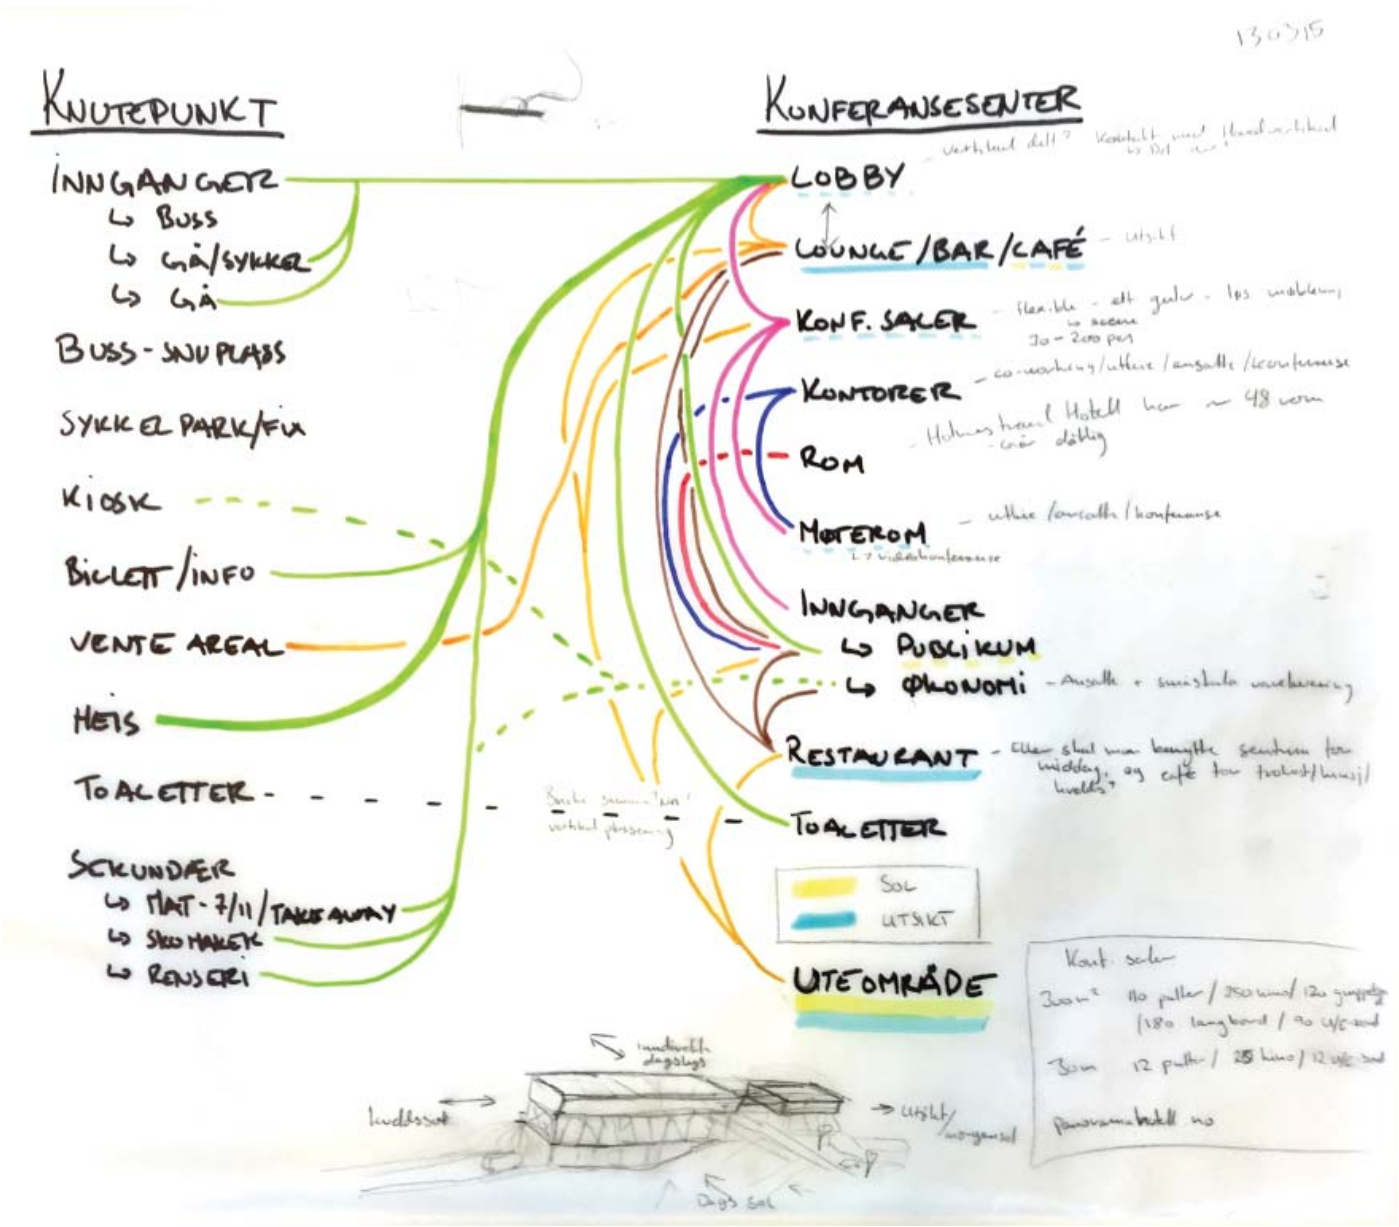 130315
KNUTEPUNKT
INNGANGER
↳ BUSS
↳ GÅ/SYKKEL
↳ GÅ
BUSS-SNUPLASS
SYKKELPARK/FIX
KIOSK
BILLETT/INFO
VENTE AREAL
HEIS
TOALETTER
SEKUNDÆR
↳ MAT-7/11/TAKEAWAY
↳ SKOMAKER
↳ RENSERI
KONFERANSESENTER
LOBBY
vertikal delt?
LOUNGE/BAR/CAFÉ
- utsikt
KONF. SALER
- flexible - ett gulv - løs møblering
↳ scene
30-200 pers
KONTORER
- co-working/utleie/ansatte/konferanse
ROM
- Holmestrand Hotell har ~ 48 rom
dårlig
MØTEROM
- utleie/ansatte/konferanse
↳ videokonferanse
INNGANGER
↳ PUBLIKUM
↳ ØKONOMI
- Ansatte + varelevering
RESTAURANT
- Eller skal man benytte sentrum for
middag, og café for frokost/lunsj/
kvelds?
TOALETTER
vertikal plassering
SOL
UTSIKT
UTEOMRÅDE
Konf. saler
300m² 110 pulter / 250 kino / 120 gruppebord
/180 langbord / 90
30m 12 pulter / 25 kino / 12
panoramahotell.no
dagslys
kveldssol
utsikt/
morgensol
Dags sol